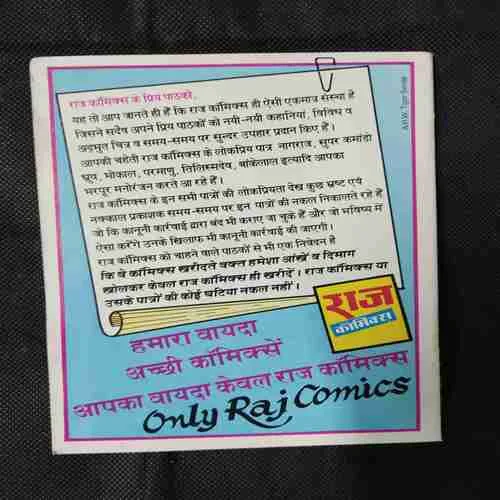 राज कॉमिक्स के प्रिय पाठकों,
यह तो आप जानते ही हैं कि राज कॉमिक्स ही ऐसी एकमात्र संस्था है
जिसने सदैव अपने प्रिय पाठकों को नयी-नयी कहानियां, विविध व
अद्भुत चित्र व समय-समय पर सुन्दर उपहार प्रदान किए हैं।
आपकी चहेती राज कॉमिक्स के लोकप्रिय पात्र नागराज, सुपर कमांडो
ध्रुव, भोकाल, परमाणु, तिलिस्मदेव, बांकेलाल इत्यादि आपका
भरपूर मनोरंजन करते आ रहे हैं।
राज कॉमिक्स के इन सभी पात्रों की लोकप्रियता देख कुछ भ्रष्ट एवं
नक्काल प्रकाशक समय-समय पर इन पात्रों की नकल निकालते रहे हैं
जो कि कानूनी कार्रवाई द्वारा बंद भी कराए जा चुके हैं और जो भविष्य में
ऐसा करेंगे उनके खिलाफ भी कानूनी कार्रवाई की जाएगी।
राज कॉमिक्स को चाहने वाले पाठकों से भी एक निवेदन है
कि वे कॉमिक्स खरीदते वक्त हमेशा आंखें व दिमाग
खोलकर केवल राज कॉमिक्स ही खरीदें। राज कॉमिक्स या
उसके पात्रों की कोई घटिया नकल नहीं।
राज
कॉमिक्स
हमारा वायदा
अच्छी कॉमिक्सें
आपका वायदा केवल राज कॉमिक्स
Only Raj Comics